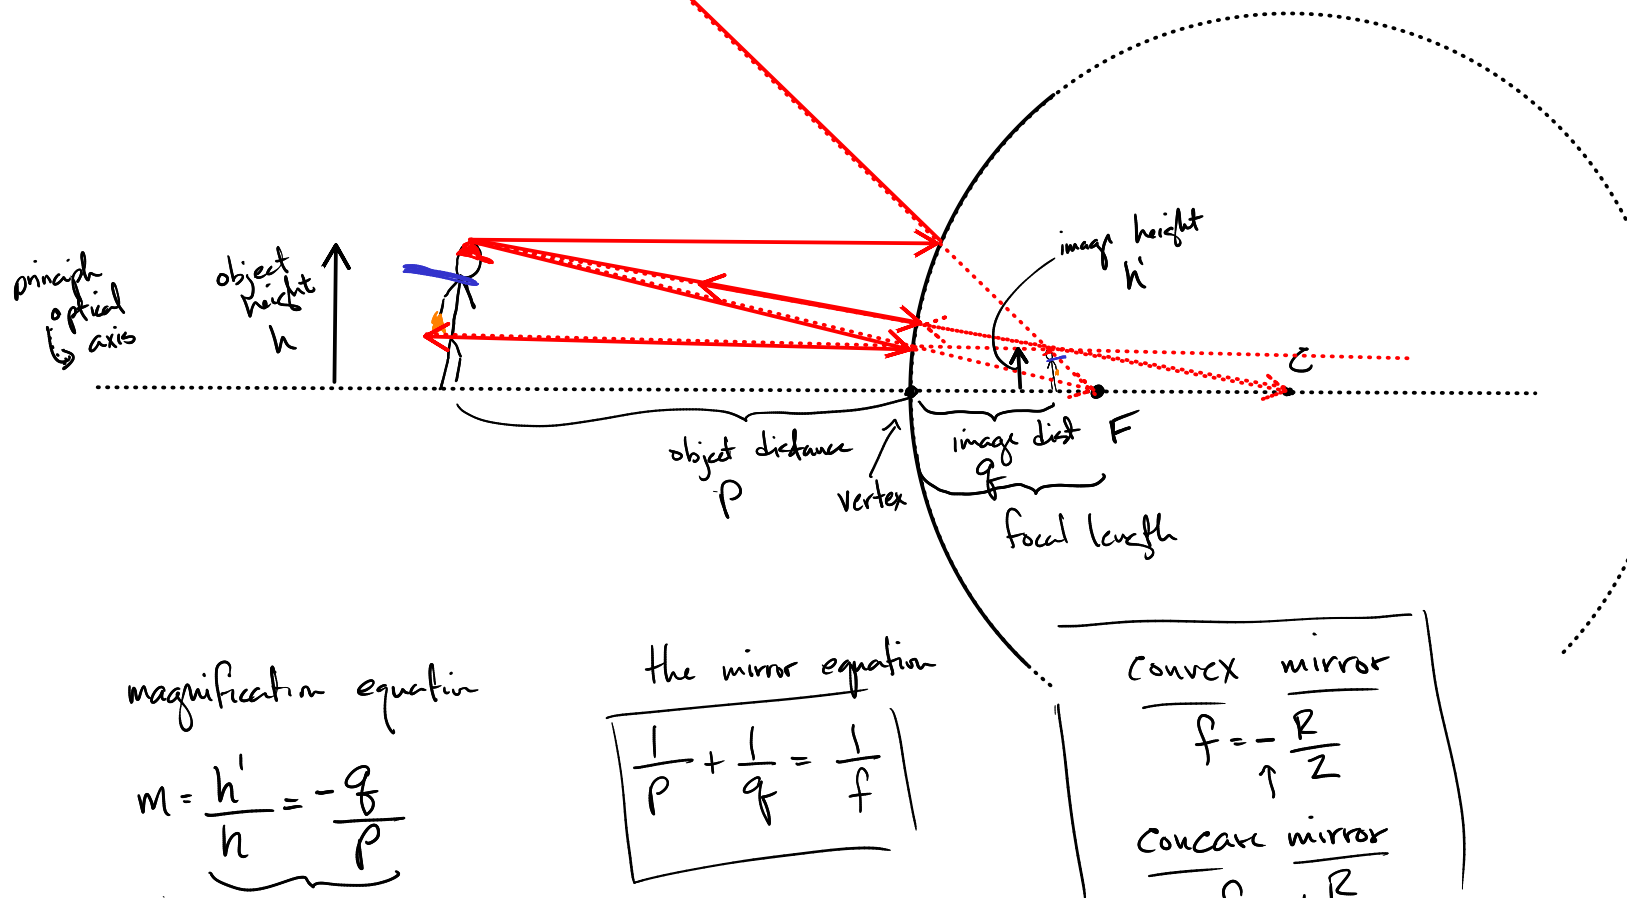 principle
optical
axis
object
height
h
image height
h'
C
object distance
p
vertex
image dist
q
F
focal length
magnification equation
m = h'/h = -q/p
the mirror equation
1/p + 1/q = 1/f
convex mirror
f = - R/2
concave mirror
R